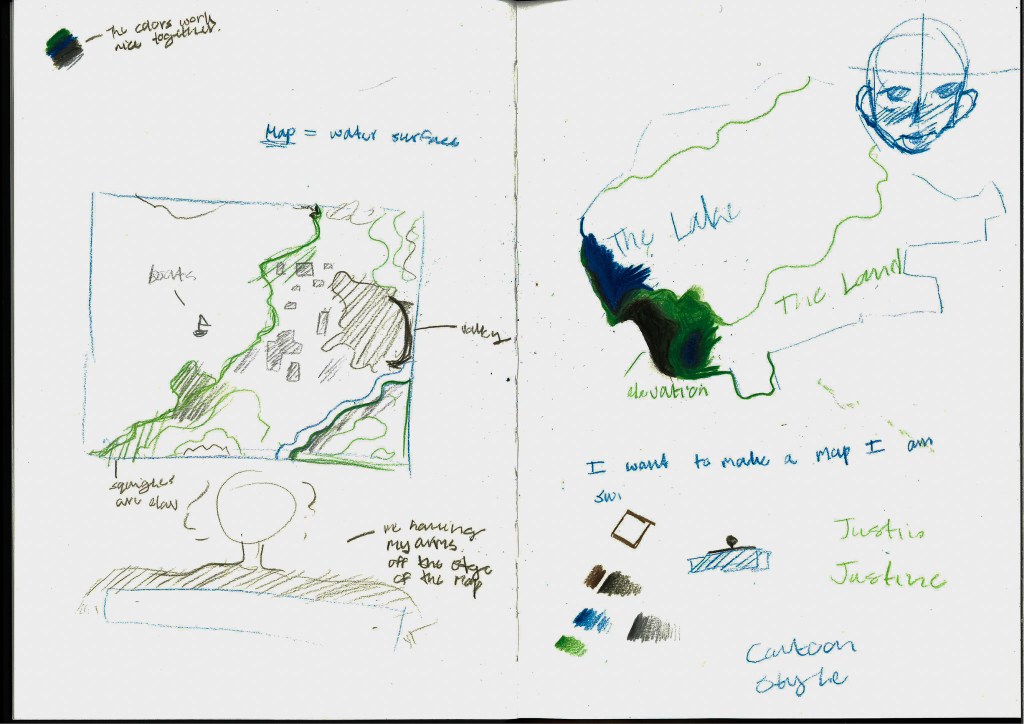 The colors work
nice together.
Map = water surface
boats
valley
squiggles
are elav
me hanging
my arms
off the edge
of the map
The Lake
The Land
elevation
I want to make a map I am
swi
Justin
Justine
Cartoon
style